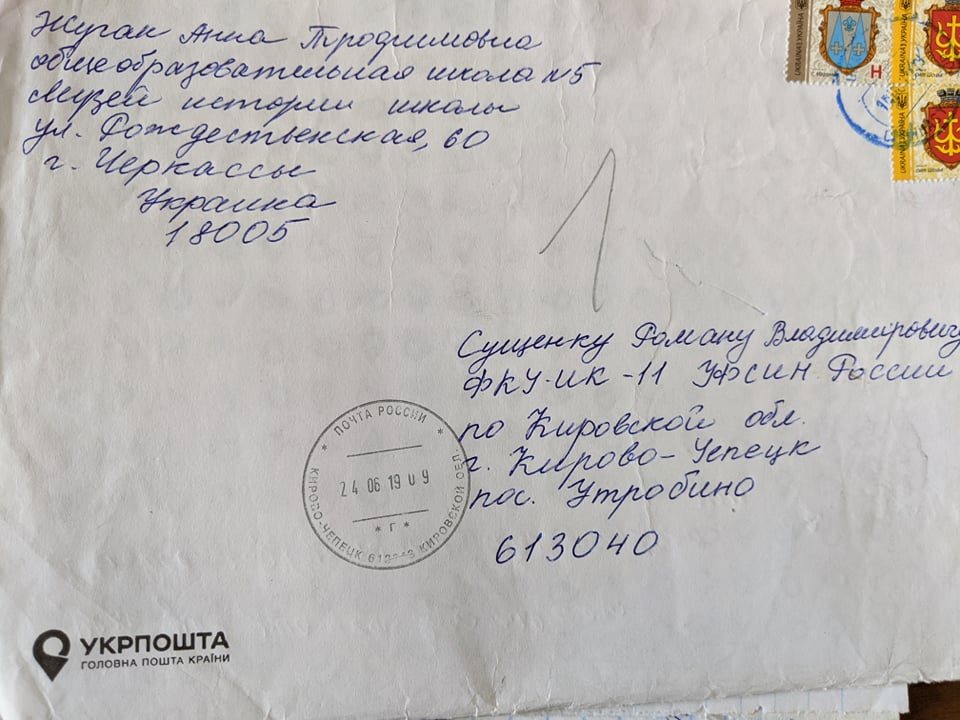 Жуган Анна Трофимовна
общеобразовательная школа №5
Музей истории школы
ул. Рождественская, 60
г. Черкассы
Украина
18005
UKRAINE УКРАЇНА
Н
UKRAINE УКРАЇНА
UKRAINE УКРАЇНА
Сущенку Роману Владимировичу
ФКУ-ИК-11 УФСИН России
по Кировской обл.
г. Кирово-Чепецк
пос. Утробино
613040
* ПОЧТА РОССИИ *
24 06 19 09
* Г *
КИРОВО-ЧЕПЕЦК КИРОВСКОЙ ОБЛ.
УКРПОШТА
ГОЛОВНА ПОШТА КРАЇНИ